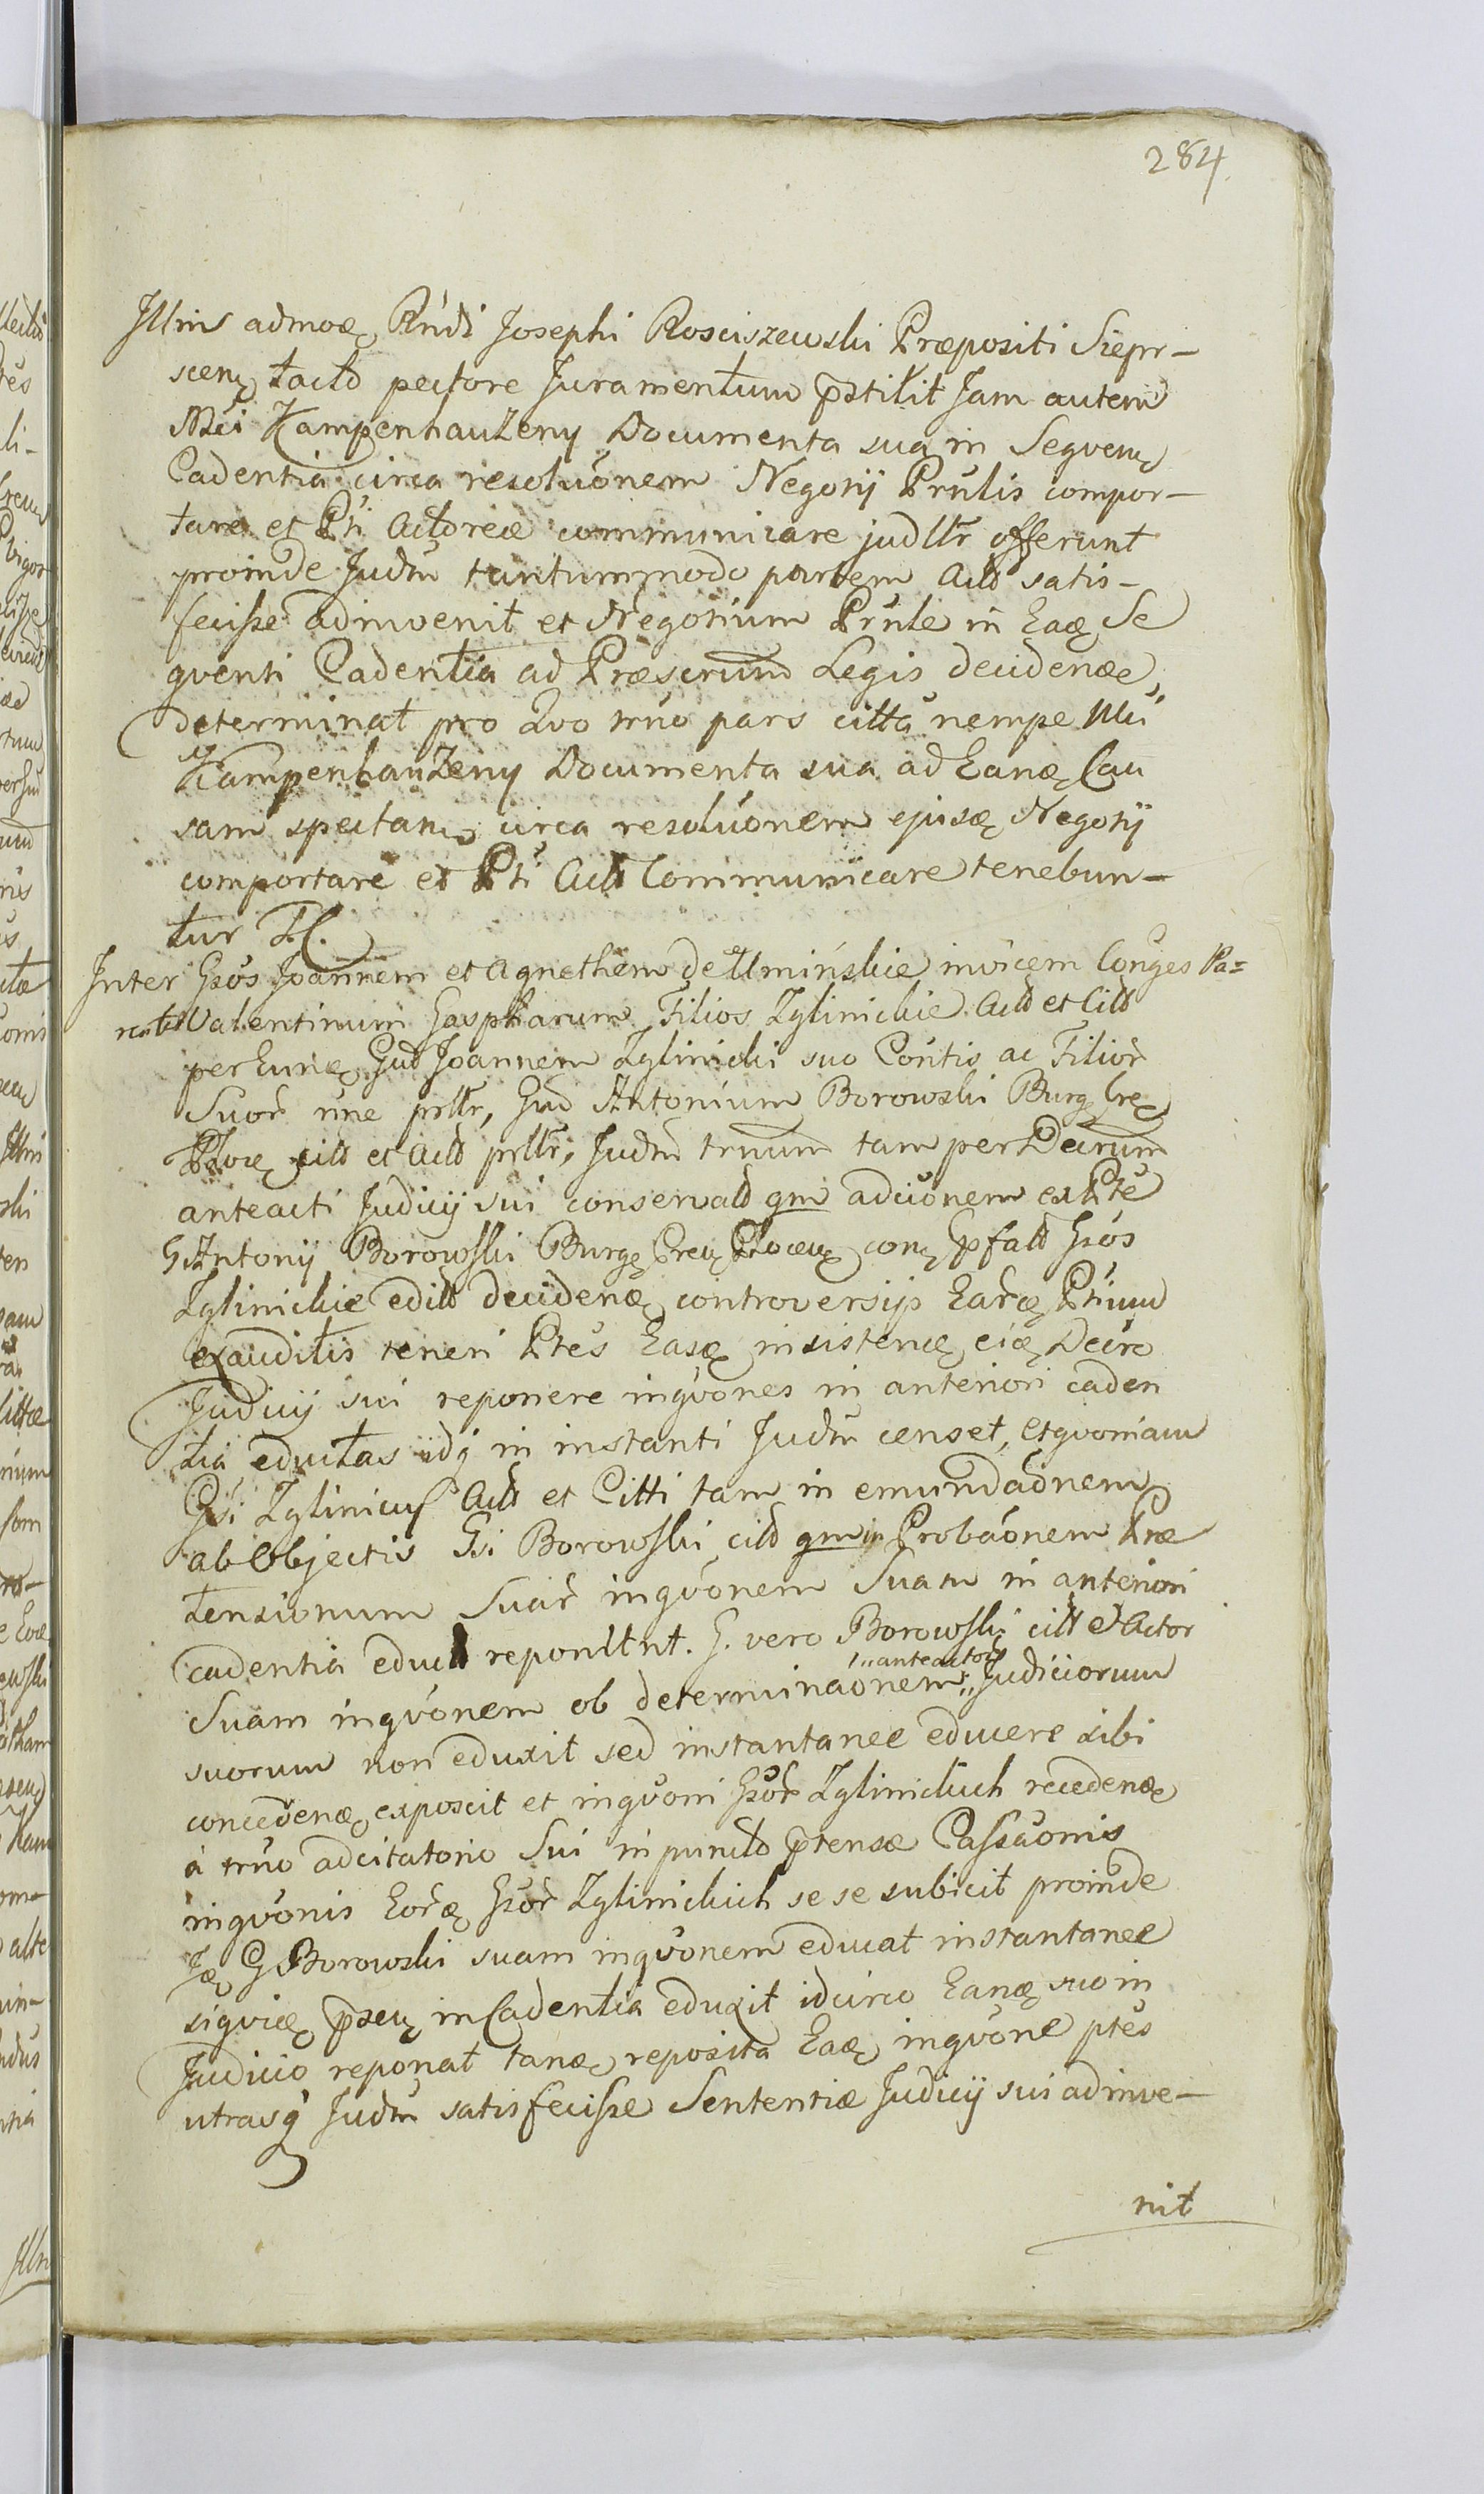 284
Jllmi admoᶒ Rńdi Josephi Rosciszewski Præpositi Siepr-
scenᶒ tacto pectore Juramentum p̄stitit Jam autem
Mci KampenhauZeny Documenta sua in Seqven
Cadentia circa resoluónem Negotij Prńlis compor-
tare et Pti Actoreæ communicare judllr offerunt
proinde Judm tantummodo partem Acto satis-
fecisse adinvenit et Negotium Prńle in Eaᶒ Se
qventi Cadentia ad Præscrum Legis decidenᶒ
determinat pro Qvo trńo pars citta nempe Mci
KampenhauZeny Documenta sua ad Eanᶒ Cau
sam spectan circa resoluónem ejusᶒ Negotij
comportare et Pti Acto Communicare tenebun-
tur
Inter Gsos Joannem et Agnethem de Umińskie invicem Conges Pa=
rentes Valentinum Gaspharum Filios Zglinickie Acto et Citto
per Eunᶒ Gud Joannem Zglinicki suo Contis ac Filior
Suor nne prllr, Gud Antonium Borowski Burgᶒ Creᶒ
Plocᶒ citto et Acto prllr, Judm trnum tam per Decrum
anteacti Judicij sui conservato qm adcíonem ex Pte
G Antonij Borowski Burgᶒ Creᶒ Plocenᶒ conᶒ p̄fato Gsos
Zglinickie edito decidenᶒ controversijs Earᶒ Ptium
exauditis teneri Ptes Easᶒ insistenᶒ eiᶒ Decro
Judicij sui reponere inqvónes in anteriori caden
tia eductas idq in instanti Judm censet, Etqvoniam
Gsi Zglinicy Acto et Citti tam in emundaónem
ab Objectis Gsi Borowski citto qm in Probaónem Præ
tensionum Suar inqvónem Suam in anteriori
cadentia educto reponltnt. G. vero Borowski citt et Actor
Suam inqvónem ob determinaónem „anteactor„ Judiciorum
suorum non eduxit sed instantanee educere sibi
concedenᶒ exposcit et inqvóni Gsor Zglinickich recedenᶒ
à trńo adcitatorio Sui in puncto p̄tensæ Cassaónis
inqvónis Eorᶒ Gsor Zglinickich se se subicit proinde
Jᶒ G Borowski suam inqvónem educat instantanee
siqviᶒ p̄senᶒ in Cadentia eduxit idcirco Eanᶒ suo in
Judicio reponat tanᶒ reposita Eaᶒ inqvóne ptes
utrasq Judm satisfecisse Sententiæ Judicij sui adinve-
nit